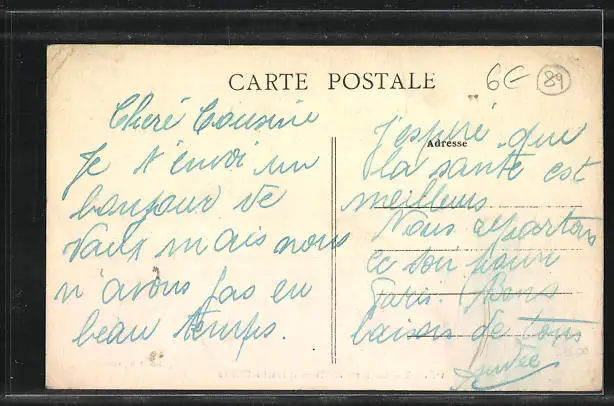 CARTE POSTALE
6€
89
Cheré Cousine
Je t'envoi un
bonjour de
Vaux mais nous
n'avons pas eu
beau temps.
Adresse
J'esperé que
la santé est
meilleur
Nous repartons
ce soir pour
Paris. Bons
baisers de tous